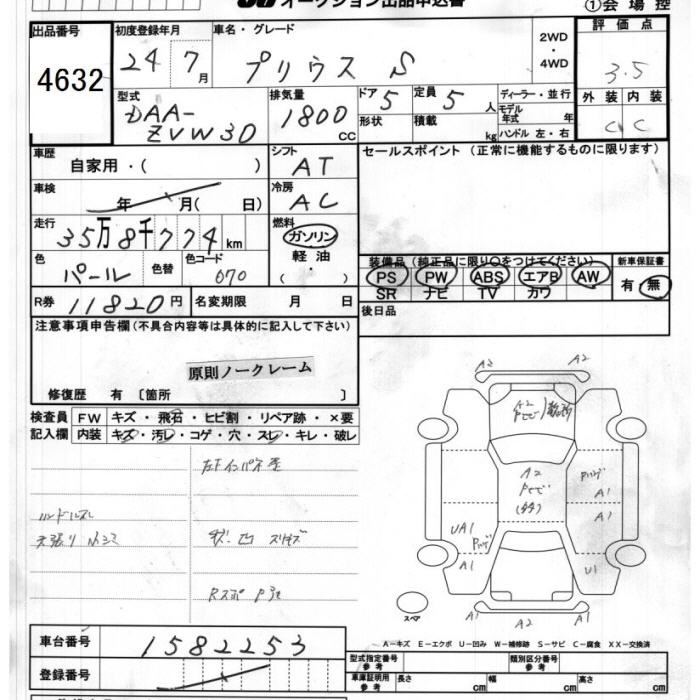 オークション出品申込書
①会場控
出品番号
4632
初度登録年月
24 7月
車名・グレード
プリウス S
2WD
・
4WD
評価点
3.5
外装 内装
C C
型式
DAA-
ZVW30
排気量
1800
CC
ドア 5
形状
定員 5 人
積載 kg
ディーラー・並行
モデル
年式 年
ハンドル 左・右
車歴
自家用・( )
シフト
AT
セールスポイント (正常に機能するものに限ります)
車検
年 月( 日)
冷房
AC
走行
35万8千774km
燃料
ガソリン
軽油
( )
色
パール
色替
色コード
070
装備品 (純正品に限り○をつけてください)
PS PW ABS エアB AW
SR ナビ TV カワ
新車保証書
有・無
R券 11820円
名変期限 月 日
後日品
注意事項申告欄(不具合内容等は具体的に記入して下さい)
原則ノークレーム
修復歴 有〔箇所 〕
検査員
記入欄
FW キズ・飛石・ヒビ割・リペア跡・×要
内装 キズ・汚レ・コゲ・穴・スレ・キレ・破レ
左Fインパネ
ハンドルスレ
天張り
Rスポ
A2 A2
A2
A2
A1
A1
UA1
A1
U1
A2 A2
スペア
車台番号
1582253
登録番号
A－キズ E－エクボ U－凹み W－補修跡 S－サビ C－腐食 XX－交換済
型式指定番号
参考
類別区分番号
参考
車庫証明用
参考
長さ cm 幅 cm 高さ cm